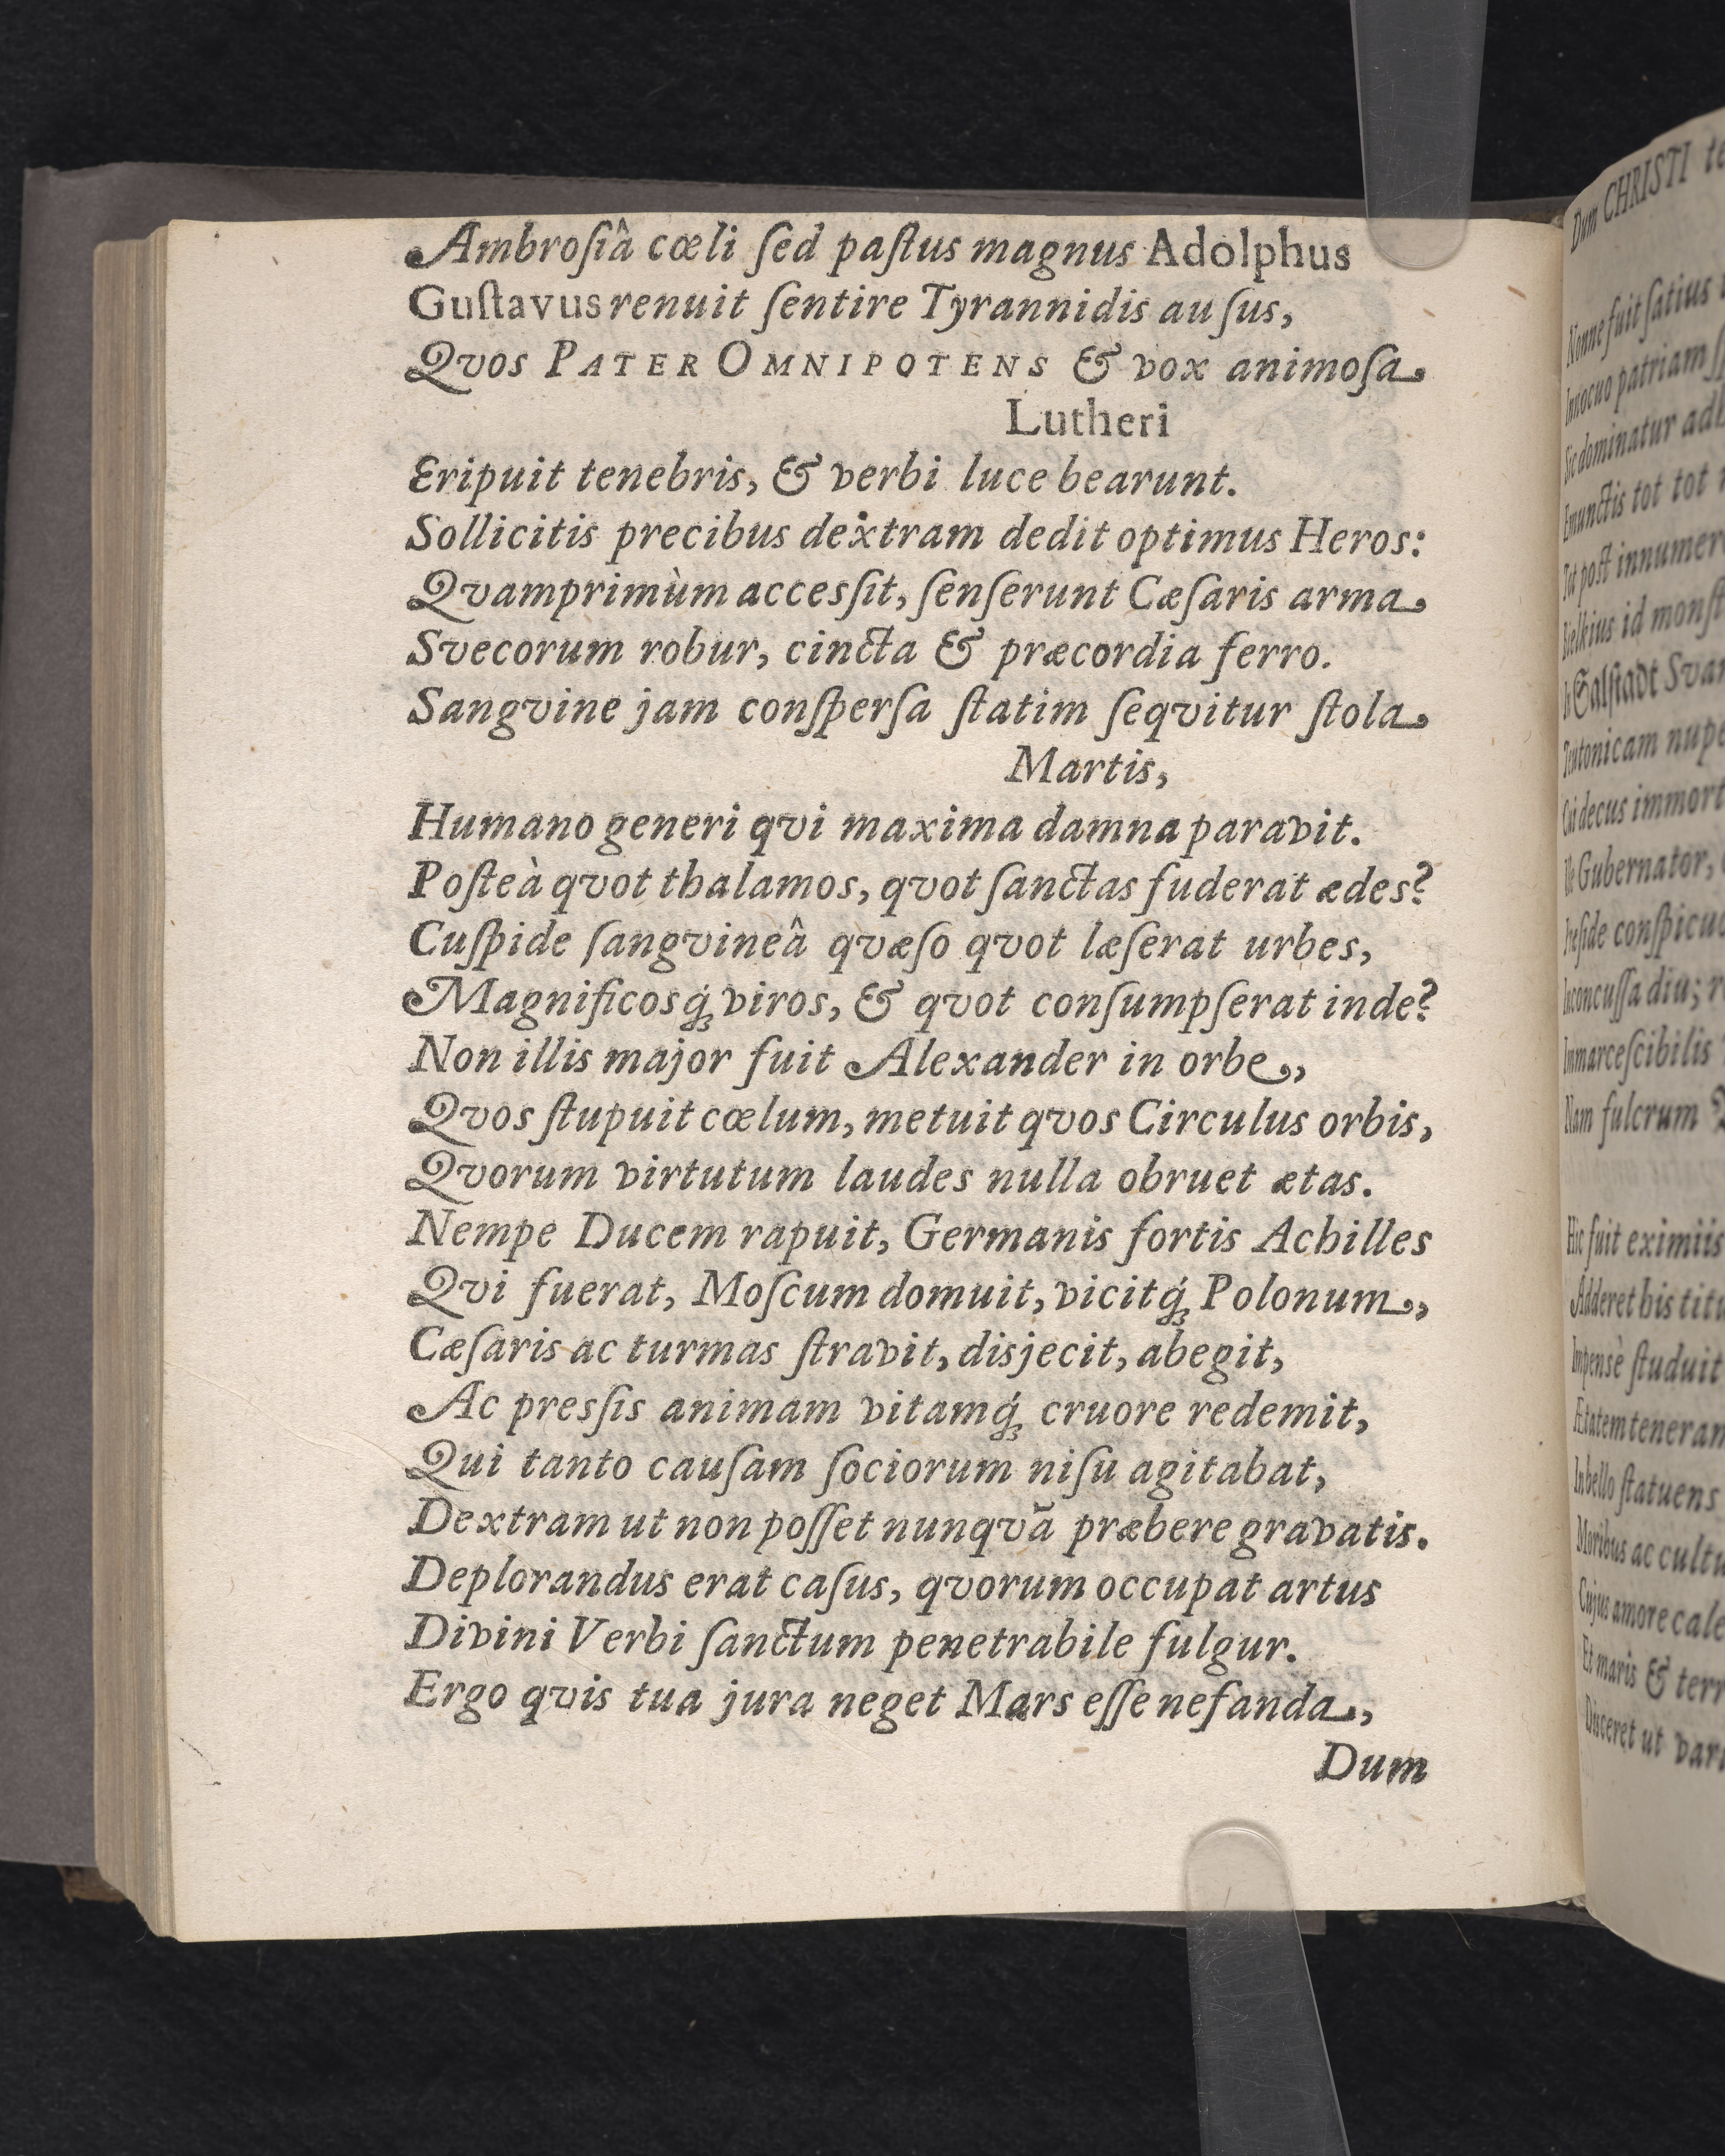 Ambroſiâ cœli ſed paſtus magnus Adolphus
Guſtavus renuit ſentire Tyrannidis auſus,
Qvos PATER OMNIPOTENS & vox animoſa
Lutheri
Eripuit tenebris, & verbi luce bearunt.
Sollicitis precibus dextram dedit optimus Heros:
Qvamprimùm accesſit, ſenſerunt Cæſaris arma
Svecorum robur, cincta & præcordia ferro.
Sangvine jam conſperſa ſtatim ſeqvitur ſtola
Martis,
Humano generi qvi maxima damna paravit.
Poſteà qvot thalamos, qvot ſanctas fuderat ædes?
Cuſpide ſangvineâ qvæſo qvot læſerat urbes,
Magnificosq́; viros, & qvot conſumpſerat inde?
Non illis major fuit Alexander in orbe,
Qvos ſtupuit cœlum, metuit qvos Circulus orbis,
Qvorum virtutum laudes nulla obruet ætas.
Nempe Ducem rapuit, Germanis fortis Achilles
Qvi fuerat, Moſcum domuit, vicitq́; Polonum,
Cæſaris ac turmas ſtravit, disjecit, abegit,
Ac presſis animam vitamq́; cruore redemit,
Qui tanto cauſam ſociorum niſu agitabat,
Dextram ut non poſſet nunqvã præbere gravatis.
Deplorandus erat caſus, qvorum occupat artus
Divini Verbi ſanctum penetrabile fulgur.
Ergo qvis tua jura neget Mars eſſe nefanda,
Dum
Dum CHRISTI
Nonne fuit ſatius
Innocuo patriam
Sic dominatur
Emunctis tot tot
Tot poſt
Bielkius id
In Salſtadt
Teutonicam
Cui decus
Ille Gubernator,
Præſide
Inconcuſſa diu;
Immarceſcibilis
Nam fulcrum
Hic fuit eximiis
Adderet his
Impensè ſtuduit
Ætatem
In bello ſtatuens
Moribus ac
Cujus amore
Et maris &
Duceret ut